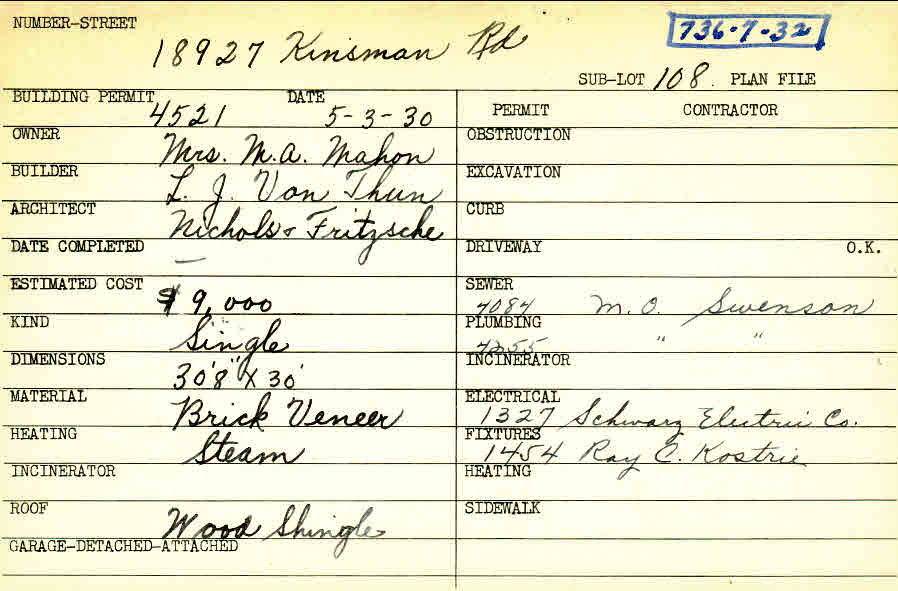 NUMBER-STREET
18927 Kinsman Rd
736-7-32
SUB-LOT 108. PLAN FILE
BUILDING PERMIT DATE
4521 5-3-30
PERMIT CONTRACTOR
OWNER
Mrs. M.A. Mahon
OBSTRUCTION
BUILDER
L. J. Von Thun
EXCAVATION
ARCHITECT
Nichols & Fritzsche
CURB
DATE COMPLETED
—
DRIVEWAY O.K.
ESTIMATED COST
$9,000
SEWER
4084 M.O. Swenson
KIND
Single
PLUMBING
4255 " "
DIMENSIONS
30'8" X 30'
INCINERATOR
MATERIAL
Brick Veneer
ELECTRICAL
1327 Schwarz Electric Co.
HEATING
Steam
FIXTURES
1454 Ray C. Kostrie
INCINERATOR
HEATING
ROOF
Wood Shingle
SIDEWALK
GARAGE-DETACHED-ATTACHED